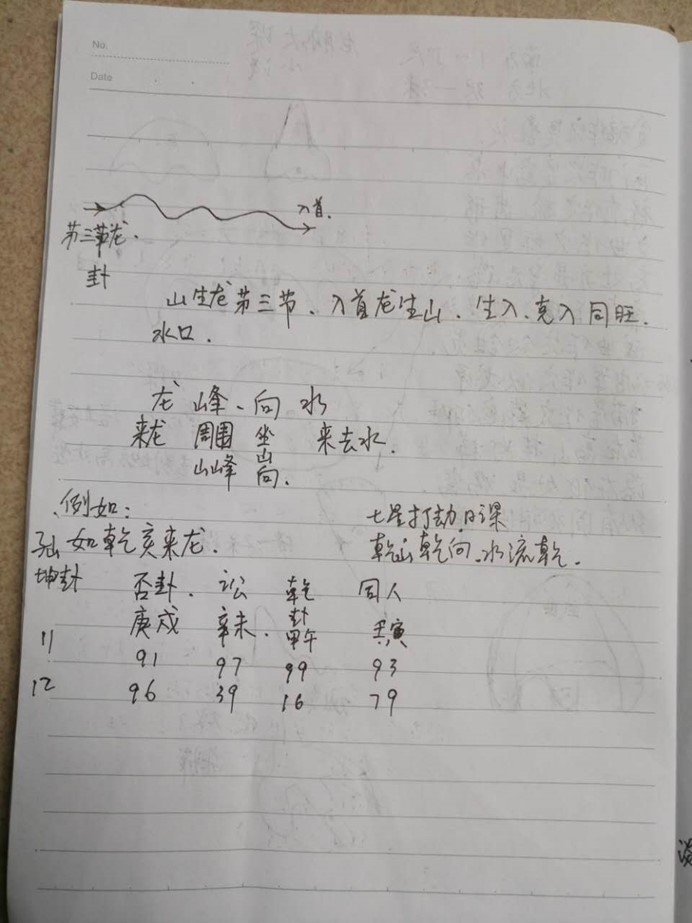 No.
Date
入首.
第三节龙.
卦
山生龙第三节、入首龙生山、生入、克入同旺.
水口.
龙 峰、向 水
来龙 周围 坐 来去水.
山峰 山
向.
例如: 七星打劫日课
如乾亥来龙. 乾山乾向、水流乾.
坤卦 否卦. 讼 乾卦 同人
庚戌 辛未. 甲午 寅
11 91 97 99 93
12 96 39 16 79